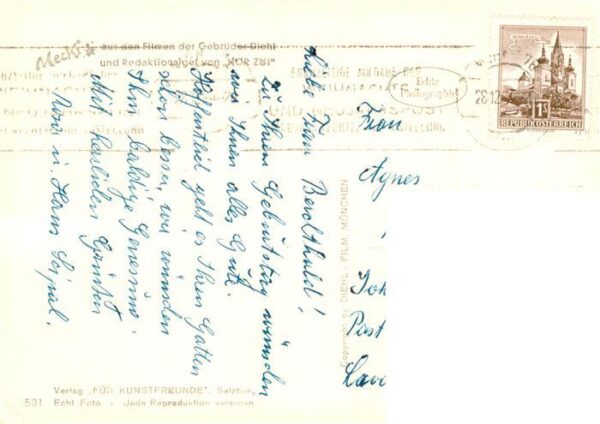 Mecki
aus den Filmen der Gebrüder Diehl
und Redaktionsigel von "HÖR ZU!"
Echte
Photographie
28.12.
1 S
REPUBLIK ÖSTERREICH
Liebe Frau
Zu Ihrem Geburtstag wünschen
wir Ihnen alles Gute.
Hoffentlich geht es Ihren Gatten
schon besser, wir wünschen
Ihm baldige Genesung.
Mit herzlichen Grüßen
u. Hans
Frau
Agnes
Joh
Post
Lava
Copyright by DIEHL - FILM, MÜNCHEN
Verlag "FÜR KUNSTFREUNDE", Salzburg
501 Echt Foto - Jede Reproduktion verboten